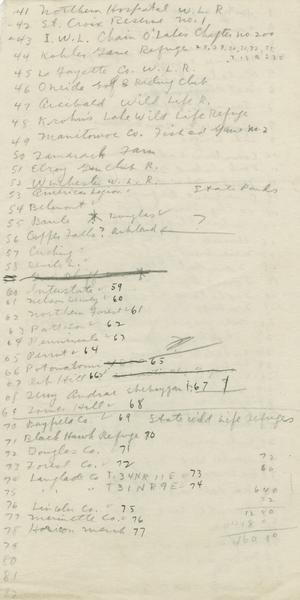 41 Northern Hospital W.L.R.
42 St. Croix Reserve no. 1
43 I.W.L. Chain O'Lakes Chapter no 200
44 Kohler Game Refuge
45 La Fayette Co. W.L.R.
46 Oneida Golf & Riding Club
47 Wild Life R.
48 Krohn's Lake Wild Life Refuge
49 Manitowoc Co. Fish and Game no 2
50 Tamarack Farm
51 Elroy Gun Club R.
52 Winchester W.L.R.
53 American Legion State Parks
54 Belmont
55 Brule * Douglas
56 Copper Falls? Ashland
57 Cushing
58 Devils L.
60 Interstate 59
61 Nelson Dewey 60
62 Northern Forest 61
63 Pattison 62
64 Peninsula 63
65 Perrot 64
66 Potawatomi 65
67 Rib Hill 66
68 Terry Andrae Sheboygan 67
69 Tower Hill 68
70 Bayfield Co. 69 State Wild Life refuges
71 Black Hawk Refuge 70
72 Douglas Co. 71
73 Forest Co. 72
74 Langlade Co T.34N R 11E 73
75 " " T31N R9E 74
76 Lincoln Co. 75
77 Marinette Co. 76
78 Horicon marsh 77
79
80
81
82